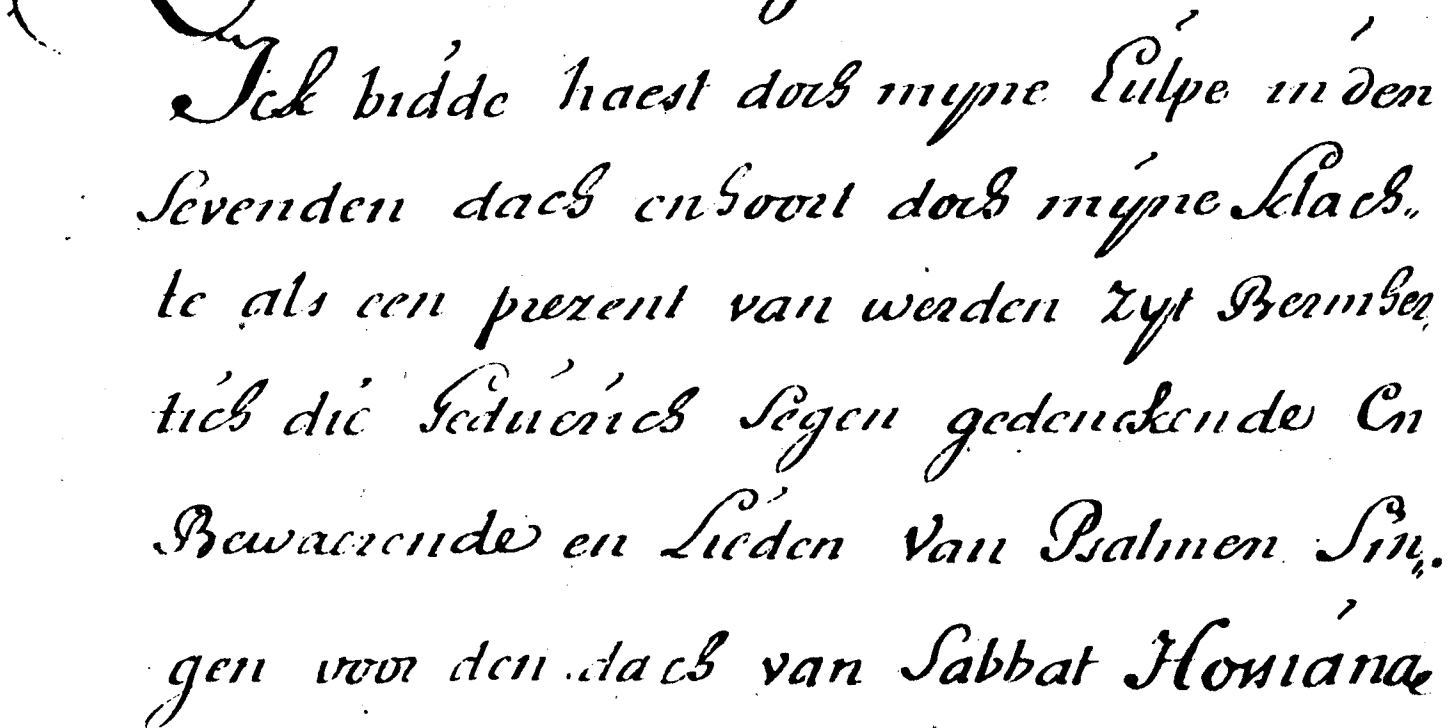 Ick bidde haest doch myne hulpe in den
sevenden dach en hoort doch mijne klach„
te als een prezent van werden zyt Bermher
tich die geduerich segen gedenckende En
Bewaerende en Lieden van Psalmen Sin„
gen voor den dach van Sabbat Hossiana